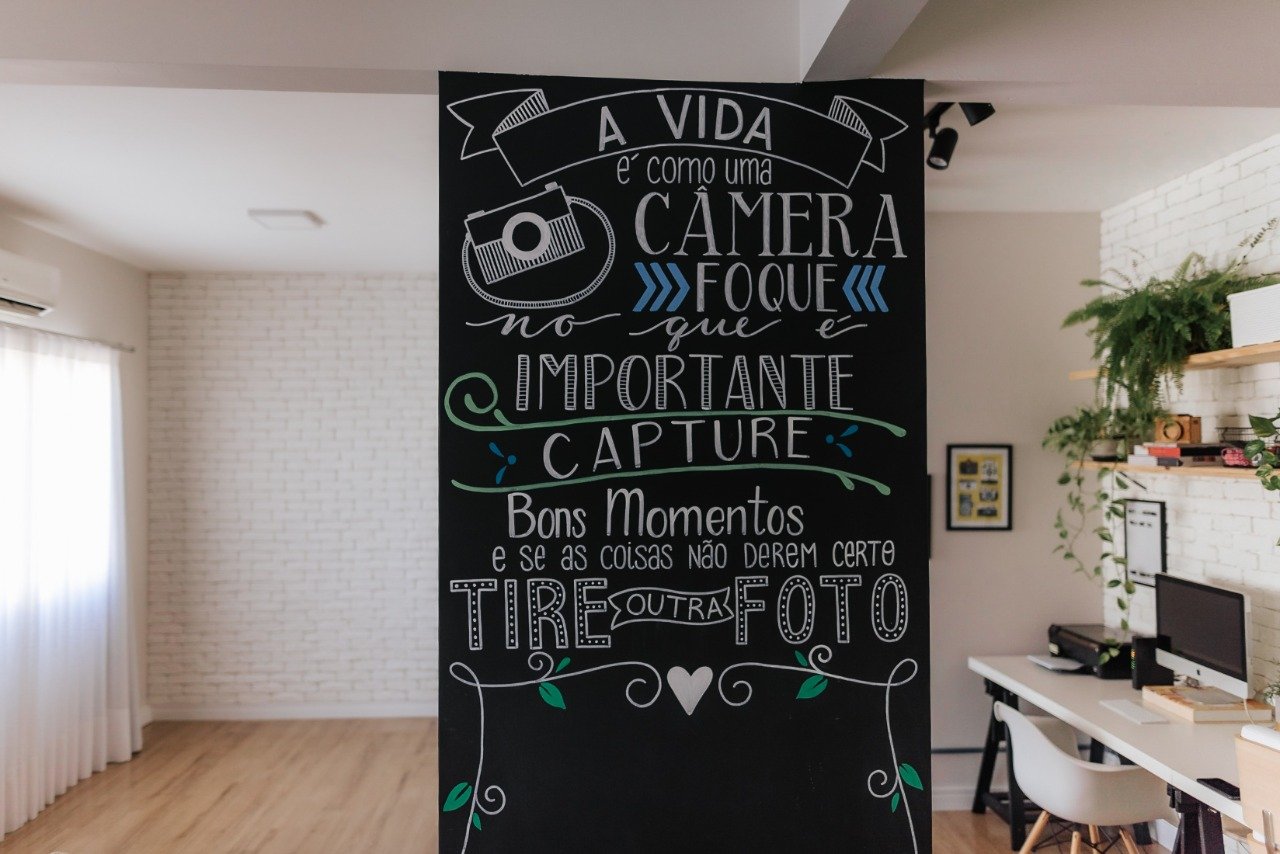 A VIDA
é como uma
CÂMERA
FOQUE
no que é
IMPORTANTE
CAPTURE
Bons Momentos
E SE AS COISAS NÃO DEREM CERTO
TIRE OUTRA FOTO